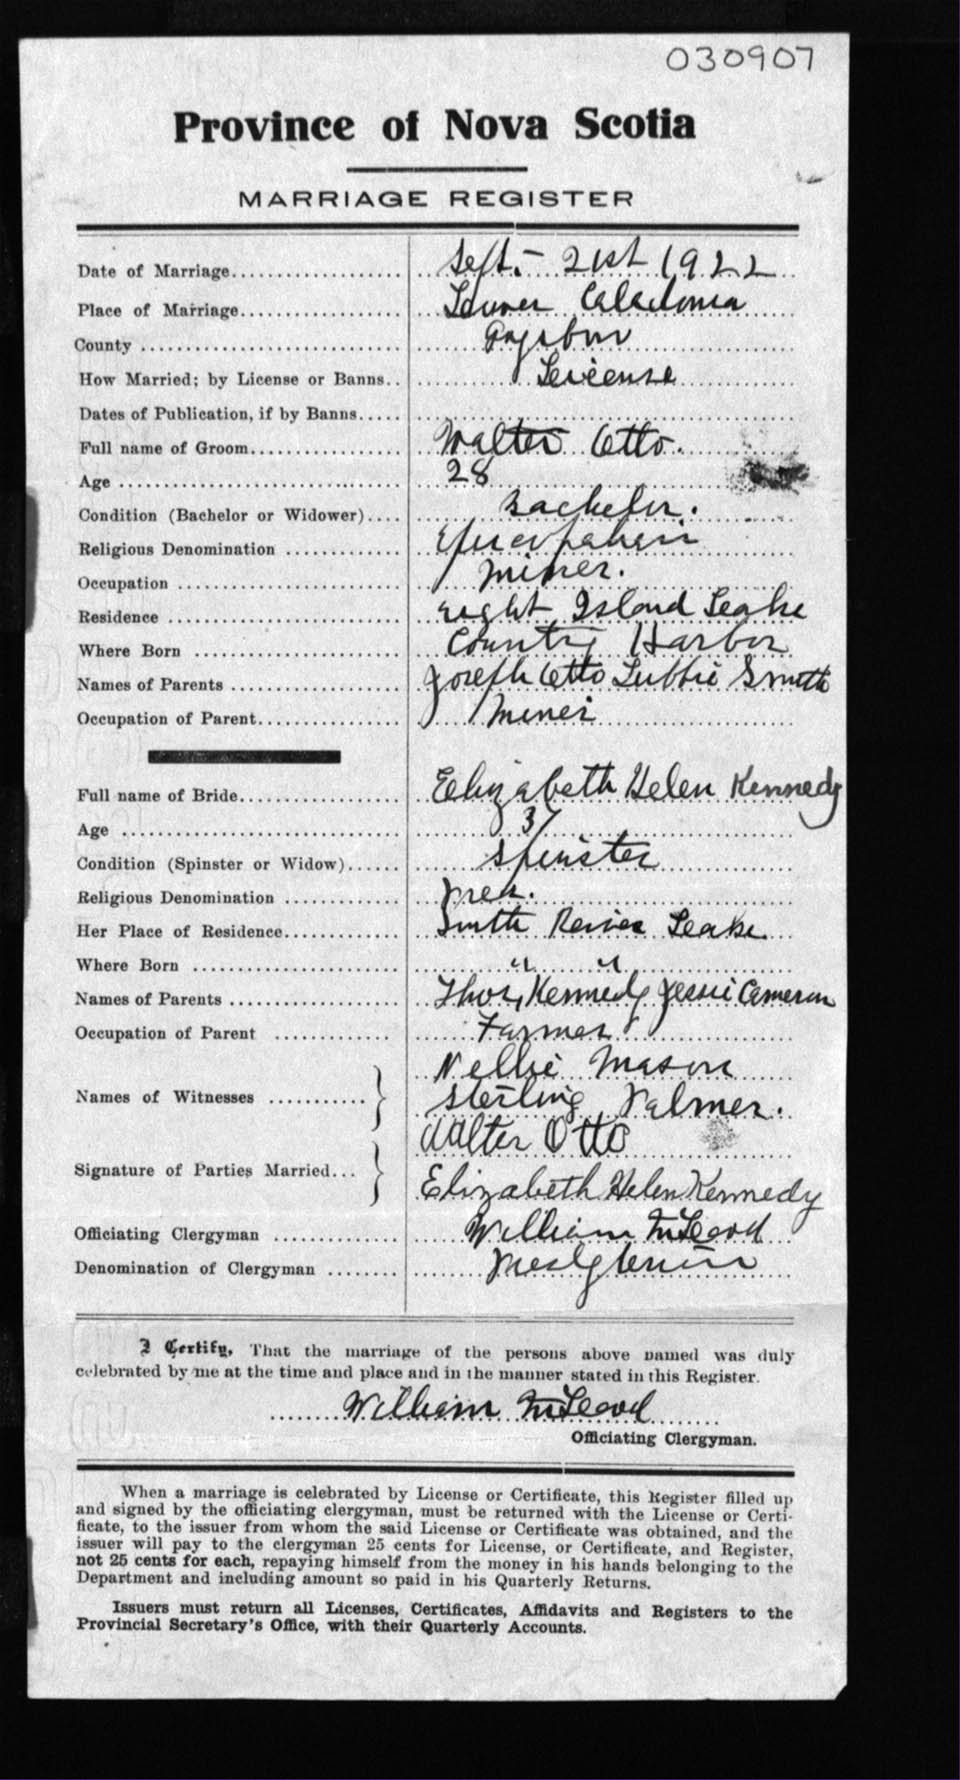 030907
Province of Nova Scotia
MARRIAGE REGISTER
Date of Marriage.................... Sept.- 21st 1922
Place of Marriage................... Lower Caladonia
County ............................
How Married; by License or Banns..
Dates of Publication, if by Banns.....
Full name of Groom.................. Walter Otto.
Age ................................. 28
Condition (Bachelor or Widower).... Bachelor.
Religious Denomination ..............
Occupation .......................... Miner.
Residence ........................... eight Island Leake
Where Born ......................... Country Harbor
Names of Parents .................... Joseph Otto Lubbie Smith
Occupation of Parent................. Miner
Full name of Bride................... Elizabeth Helen Kennedy
Age ................................. 37
Condition (Spinster or Widow)...... Spinster
Religious Denomination .............. Pres.
Her Place of Residence.............. Smith Leake
Where Born ......................... " "
Names of Parents .................... Thos, Kennedy Jessie Cameron
Occupation of Parent ............... Farmer
Nellie Mason
Names of Witnesses ...........} Sterling Palmer.
Walter Otto
Signature of Parties Married...}
Elizabeth Helen Kennedy
Officiating Clergyman ............... William McLeod
Denomination of Clergyman ........
I Certify, That the marriage of the persons above named was duly
celebrated by me at the time and place and in the manner stated in this Register.
William McLeod
Officiating Clergyman.
When a marriage is celebrated by License or Certificate, this Register filled up
and signed by the officiating clergyman, must be returned with the License or Certi-
ficate, to the issuer from whom the said License or Certificate was obtained, and the
issuer will pay to the clergyman 25 cents for License, or Certificate, and Register,
not 25 cents for each, repaying himself from the money in his hands belonging to the
Department and including amount so paid in his Quarterly Returns.
Issuers must return all Licenses, Certificates, Affidavits and Registers to the
Provincial Secretary's Office, with their Quarterly Accounts.